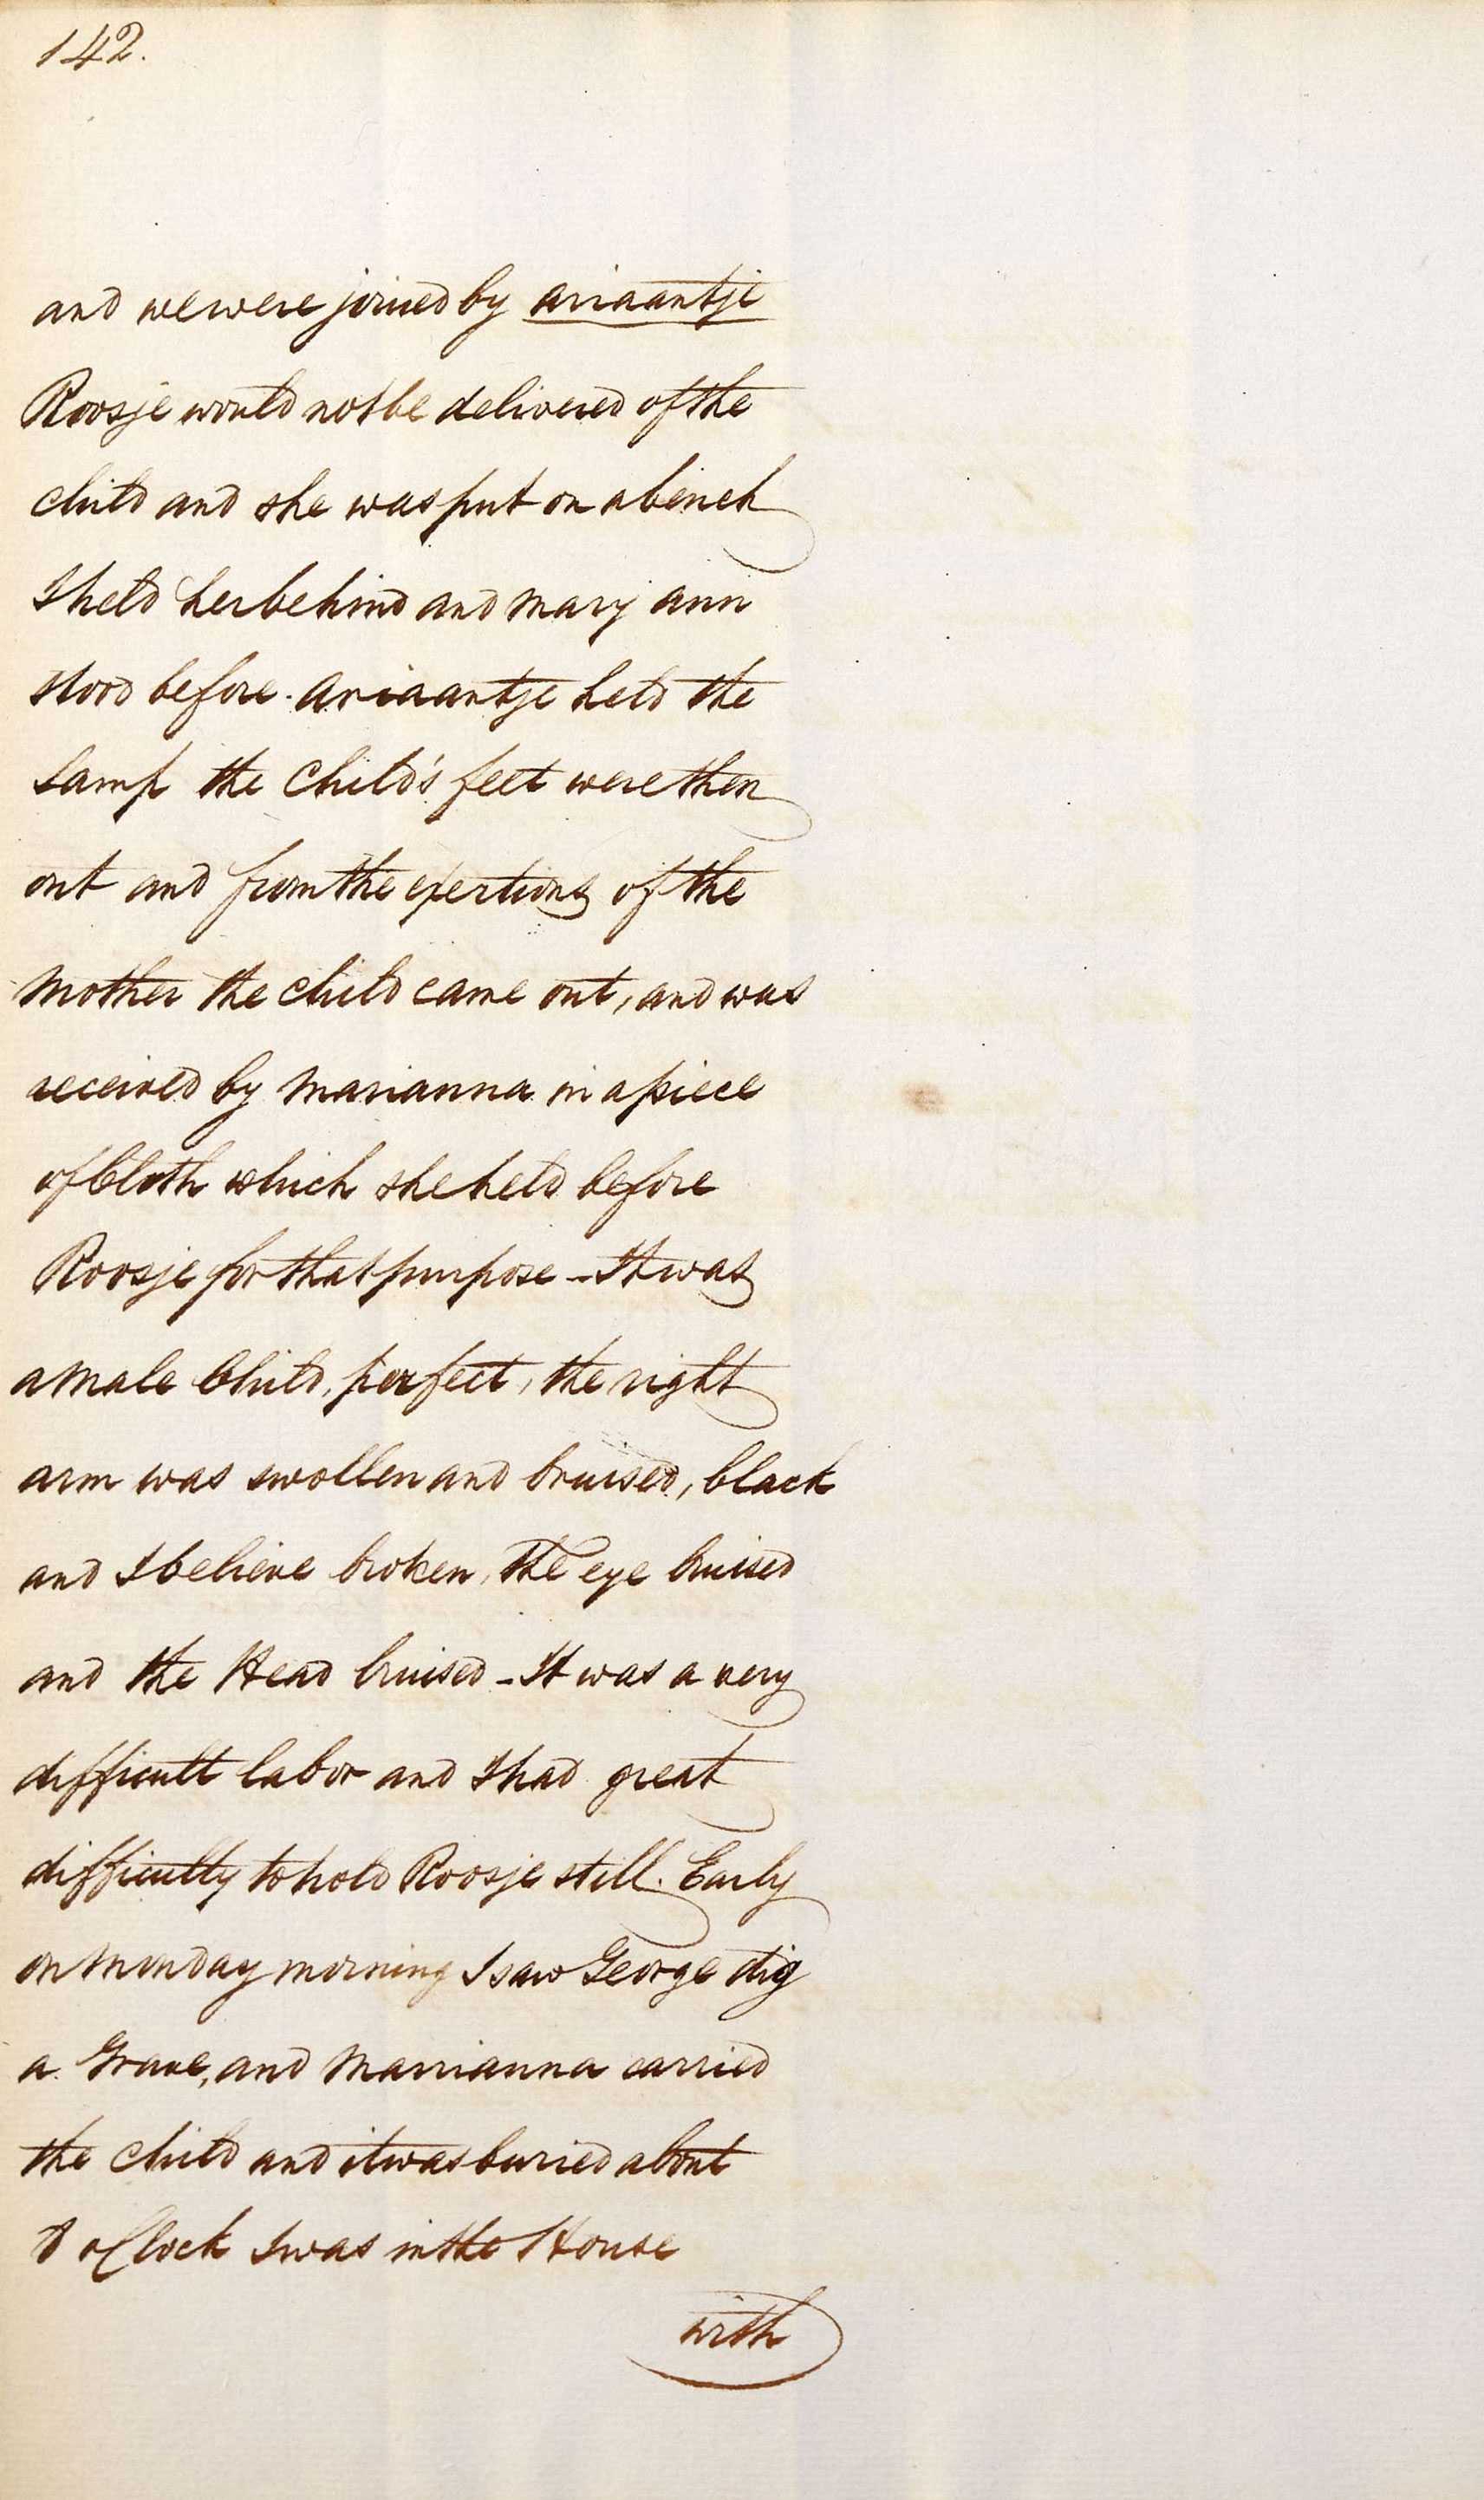 142.
and we were joined by Ariaantje
Roosje would not be delivered of the
child and she was put on a bench
I held her behind and Mary Ann
stood before. Ariaantje held the
Lamp the Child's feet were then
out and from the exertions of the
Mother the child came out, and was
received by Marianna in a piece
of Cloth which she held before
Roosje for that purpose - It was
a Male Child, perfect, the right
arm was swollen and bruised, black
and I believe broken, the eye bruised
and the Head bruised - It was a very
difficult labor and I had great
difficulty to hold Roosje still. Early
on Monday morning I saw George dig
a Grave, and Marrianna carried
the child and it was buried about
8 oClock I was in the House
with